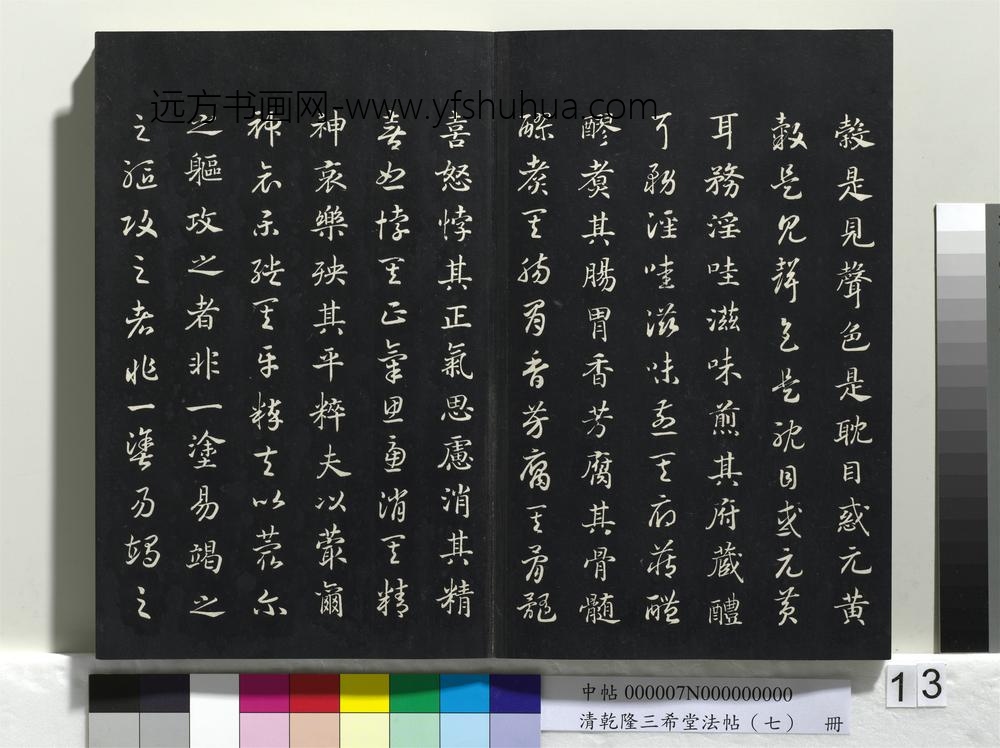 穀是見聲色是耽目惑元黄
穀是見聲色是耽目惑元黄
耳務淫哇滋味煎其府蔵醴
耳務淫哇滋味煎其府蔵醴
醪煑其腸胃香芳腐其骨髓
醪煑其腸胃香芳腐其骨髓
喜怒悖其正氣思慮消其精
喜怒悖其正氣思慮消其精
神哀樂殃其平粹夫以蕞爾
神哀樂殃其平粹夫以蕞尔
之軀攻之者非一塗易竭之
之軀攻之者非一塗易竭之
远方书画网-www.yfshuhua.com
中帖 000007N000000000
清乾隆三希堂法帖（七） 冊
13